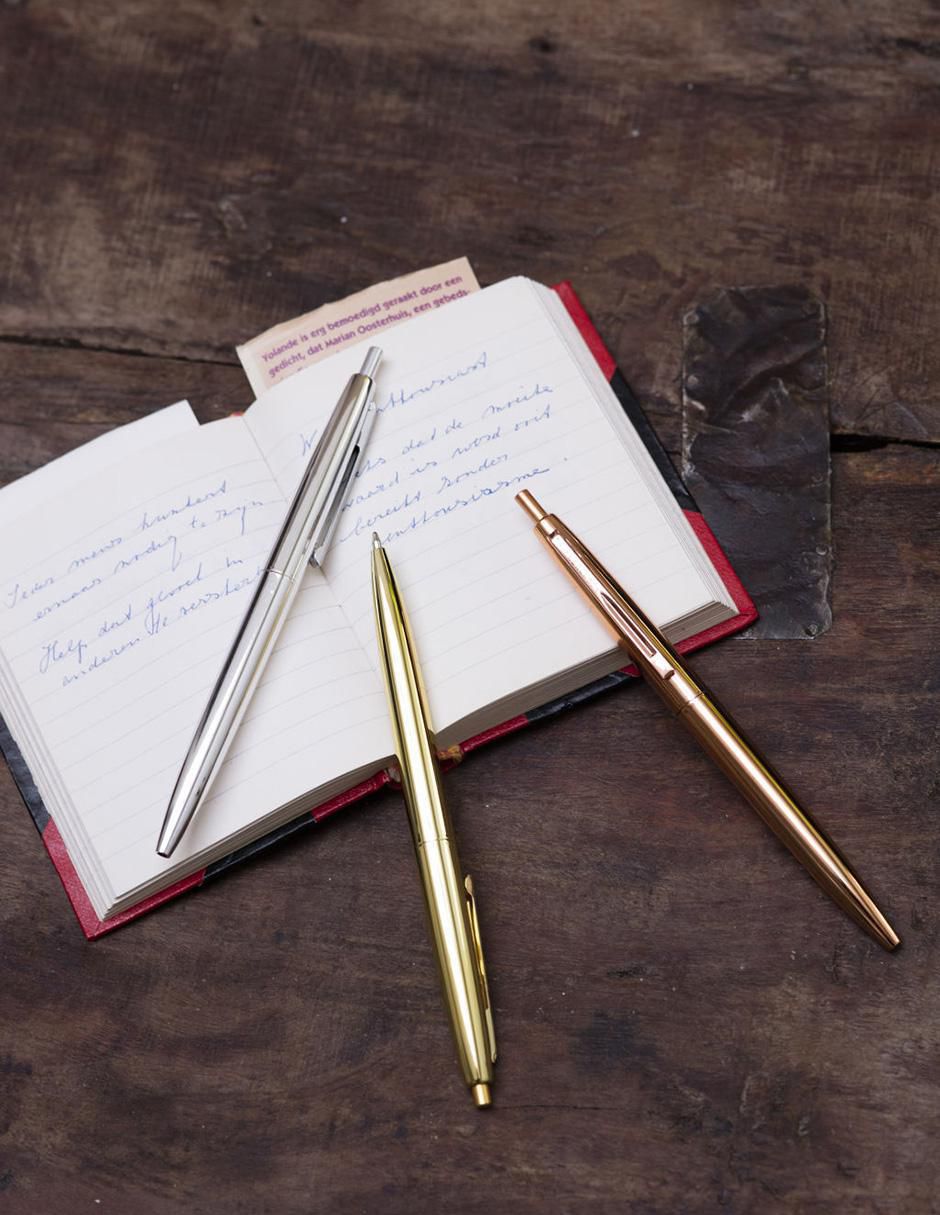 Yolande is erg bemoedigd geraakt door een
gedicht, dat Marian Oosterhuis, een gebeds-
Ieder mens hunkert
ernaar nodig te zijn
Help dat gevoel in
anderen te versterken
enthousiast
dat de moeite
waard is word ooit
bereikt zonder
enthousiasme.